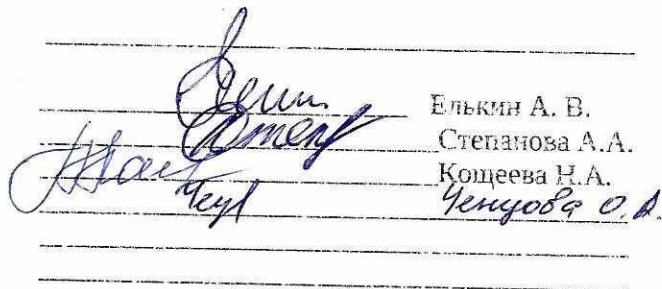 Елькин А. В.
Степанова А.А.
Кощеева Н.А.
Ченцова О.А.